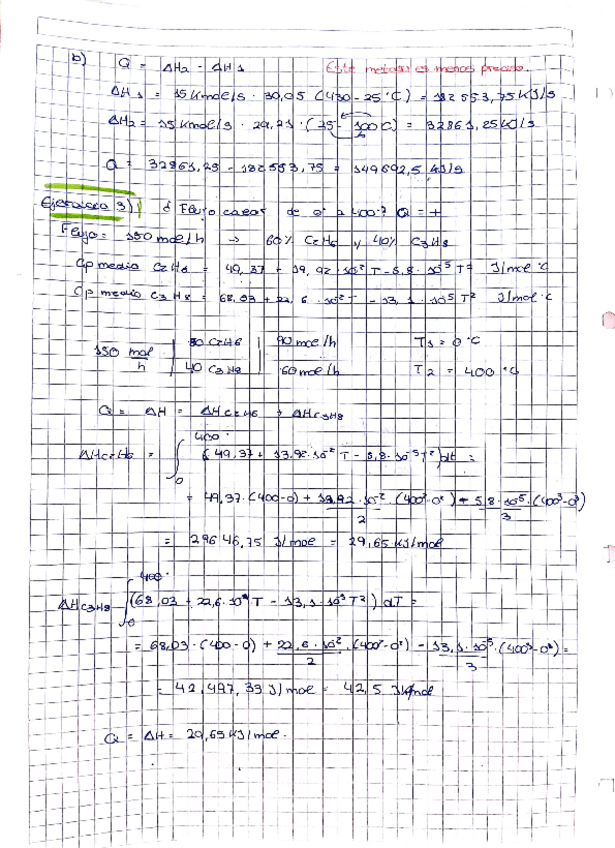 b) Q = ΔH2 - ΔH1 Este metodo es menos preciso.
ΔH1 = 15 Kmol/s · 30,05 (430-25°C) = 182553,75 KJ/s
ΔH2 = 15 Kmol/s · 29,21 · (25-100°C) = 32861,25 KJ/s
Q = 32861,25 - 182553,75 = 149692,5 KJ/s
Ejercicio 3) ¿Flujo calor de 0° a 400°? Q = +
Flujo = 150 mol/h → 60% C2H6 y 40% C3H8
Cp medio C2H6 = 49,37 + 13,92 · 10-2 T - 5,8 · 10-5 T2 J/mol °C
Cp medio C3H8 = 68,03 + 22,6 · 10-2 T - 13,1 · 10-5 T2 J/mol °C
150 mol/h | 60 C2H6 | 90 mol/h T1 = 0 °C
40 C3H8 | 60 mol/h T2 = 400 °C
Q = ΔH = ΔHC2H6 + ΔHC3H8
ΔHC2H6 = ∫0 400 (49,37 + 13,92 · 10-2 T - 5,8 · 10-5 T2) dt =
= 49,37 · (400-0) + 13,92 · 10-2 / 2 · (4002-02) - 5,8 · 10-5 / 3 · (4003-03)
= 29646,75 J/mol = 29,65 KJ/mol
ΔHC3H8 ∫0 400 (68,03 + 22,6 · 10-2 T - 13,1 · 10-5 T2) dT =
= 68,03 · (400-0) + 22,6 · 10-2 / 2 · (4002-02) - 13,1 · 10-5 / 3 · (4003-03) =
= 42.497,33 J/mol = 42,5 KJ/mol
Q = ΔH = 29,65 KJ/mol.